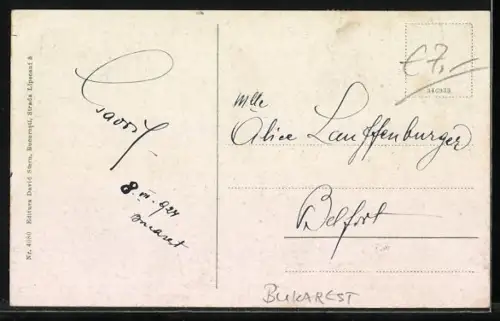 Nr. 4060 Editura David Stern, Bucureşti, Strada Lipscani 8
8.VI.924
Bucarest
€ 7,—
Mlle
Alice Lauffenburger
Belfort
BUKAREST